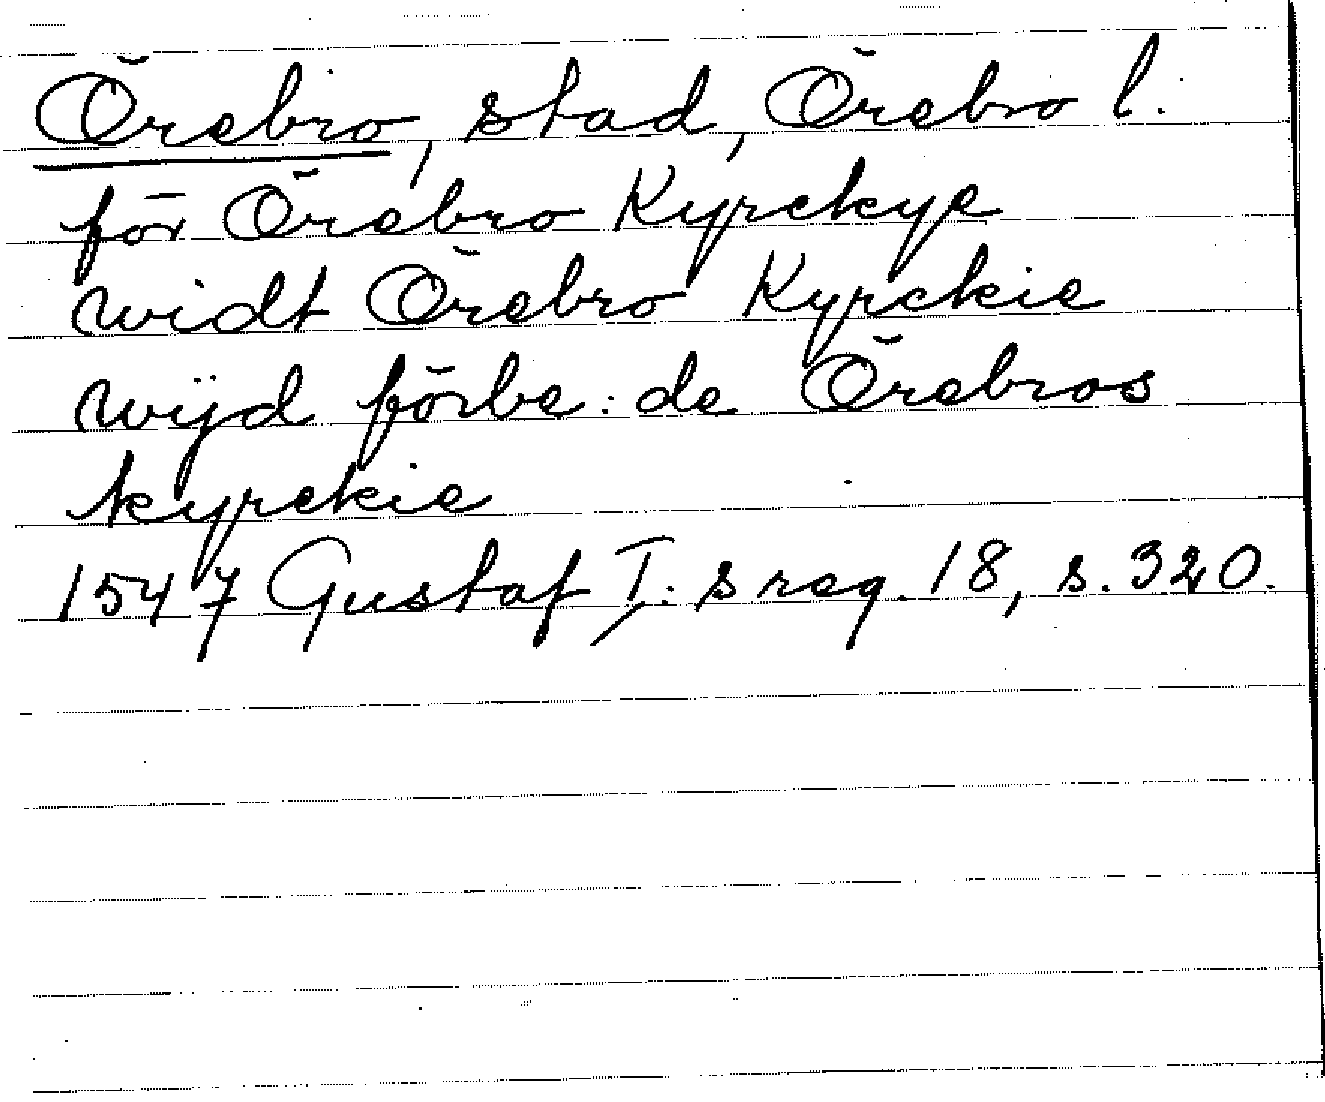 Örebro, stad, Örebro l.
för Örebro Kyrckye
widt Örebro Kyrckie
wijd förbe: de Örebros
kyrckie
1547 Gustaf I: s reg. 18, s. 320.